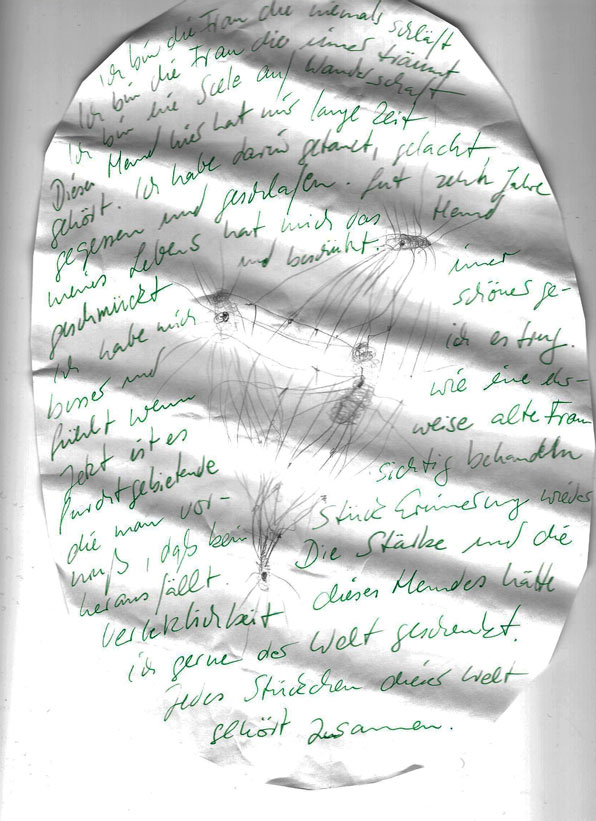 Ich bin die Frau die niemals schläft
Ich bin die Frau die immer träumt
Ich bin eine Seele auf Wanderschaft
Dieses Hemd hier hat mir lange Zeit
gehört. Ich habe darin getanzt, gelacht,
gegessen und geschlafen. Gut zehn Jahre
meines Lebens hat mich das Hemd
geschmückt und beschützt.
Ich habe mich immer
besser und schöner ge-
fühlt wenn ich es trug.
Jetzt ist es wie eine ehr-
furchtgebietende weise alte Frau
die man vor- sichtig behandeln
muß, daß kein Stück Erinnerung wieder
heraus fällt. Die Stärke und die
Verletzlichkeit dieses Hemdes hätte
ich gerne der Welt geschenkt.
Jedes Stückchen dieser Welt
gehört zusammen.